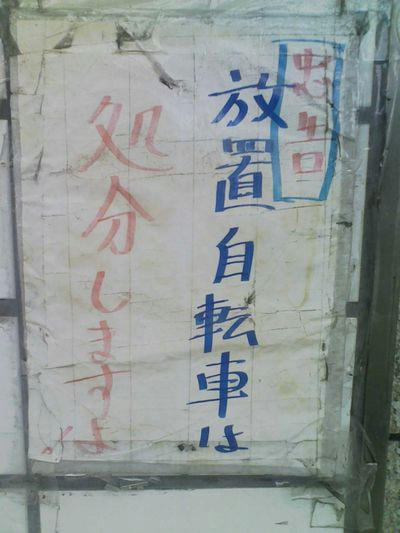 忠告
放置自転車は
処分しますよ